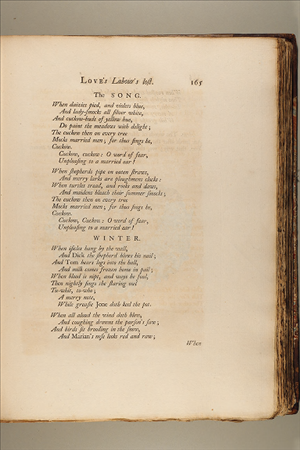 LOVE's Labour's lost. 165
The SONG.
When daisies pied, and violets blue,
And lady-smocks all silver white,
And cuckow-buds of yellow hue,
Do paint the meadows with delight;
The cuckow then on every tree
Mocks married men; for thus sings he,
Cuckow.
Cuckow, cuckow: O word of fear,
Unpleasing to a married ear!
When shepherds pipe on oaten straws,
And merry larks are ploughmens clocks:
When turtles tread, and rooks and daws,
And maidens bleach their summer smocks;
The cuckow then on every tree
Mocks married men; for thus sings he,
Cuckow.
Cuckow, Cuckow: O word of fear,
Unpleasing to a married ear!
WINTER.
When isicles hang by the wall,
And Dick the shepherd blows his nail;
And Tom bears logs into the hall,
And milk comes frozen home in pail;
When blood is nipt, and ways be foul,
Then nightly sings the staring owl
Tu-whit, to-who;
A merry note,
While greasie Jone doth keel the pot.
When all aloud the wind doth blow,
And coughing drowns the parson's saw;
And birds sit brooding in the snow,
And Marian's nose looks red and raw;
When